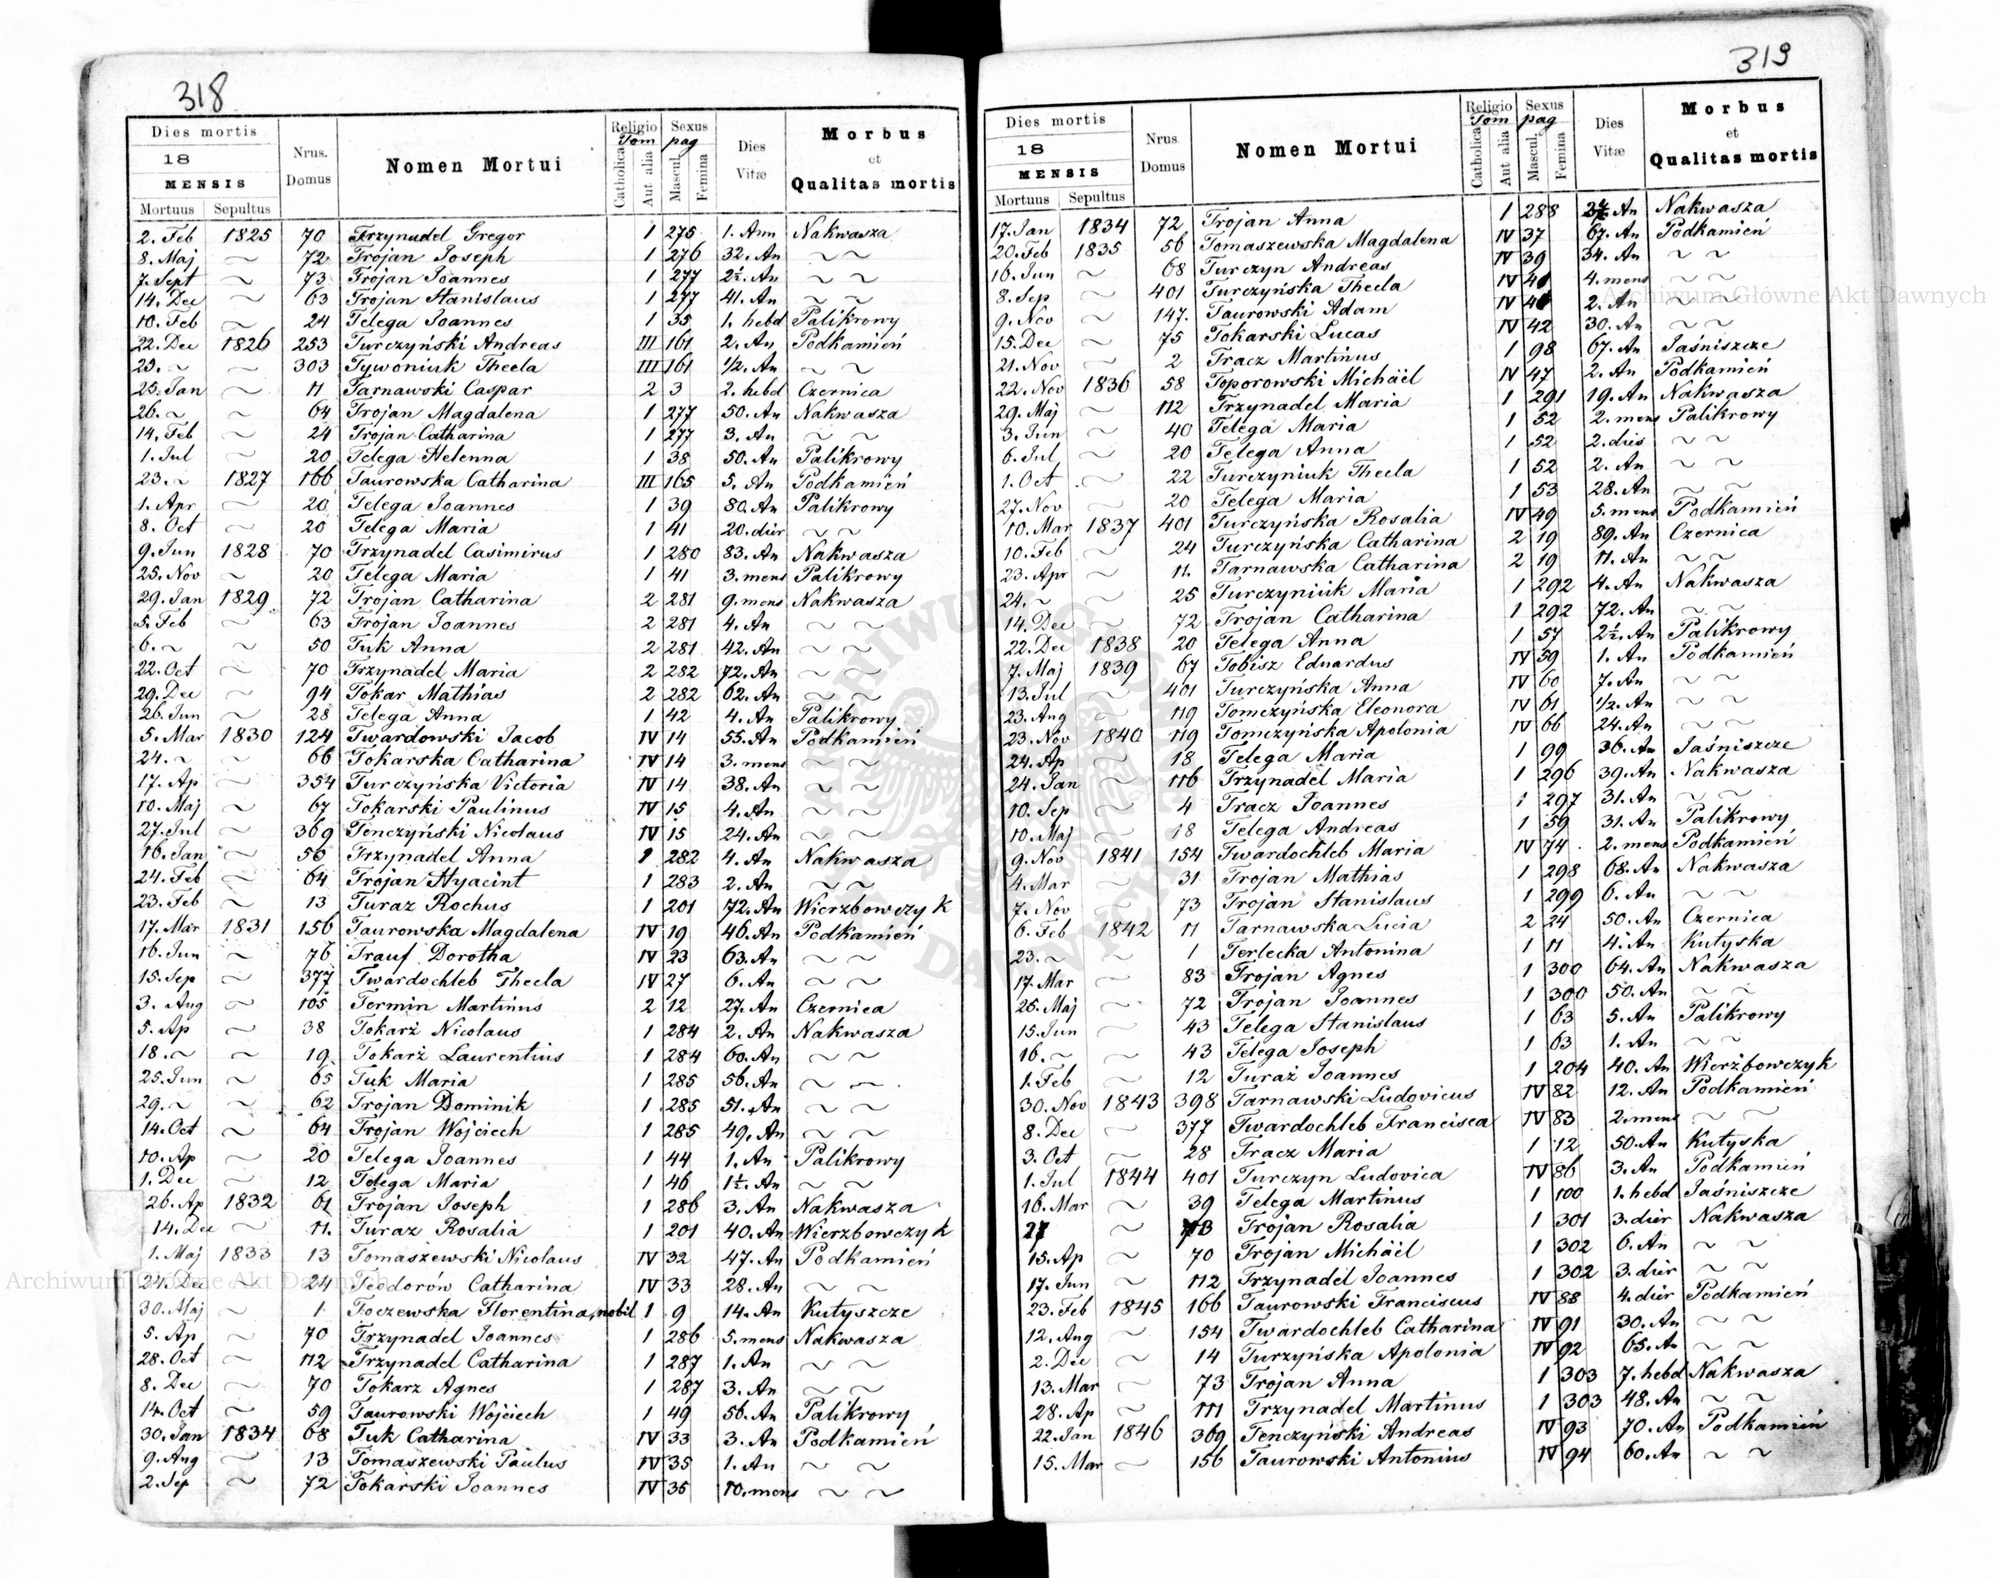 318
Dies mortis
18
MENSIS
Mortuus Sepultus
Nrus. Domus
Nomen Mortui
Religio Tom
Catholica Aut alia
Sexus pag
Mascul. Femina
Dies Vitæ
Morbus et Qualitas mortis
2. Feb 1825 70 Trzynadel Gregor 1 275 1. Ann Nakwasza
8. Maj ~ 72 Trojan Joseph 1 276 32. An ~ ~
7. Sept ~ 73 Trojan Joannes 1 277 2½. An ~ ~
14. Dec ~ 63 Trojan Stanislaus 1 277 41. An ~ ~
10. Feb ~ 24 Telega Joannes 1 35 1. hebd Palikrowy
22. Dec 1826 253 Turczyński Andreas III 161 2. An Podkamień
23. ~ ~ 303 Tywoniuk Thecla III 161 1/2. An ~ ~
25. Jan ~ 11 Tarnawski Caspar 2 3 2. hebd Czernica
26. ~ ~ 64 Trojan Magdalena 1 277 50. An Nakwasza
14. Feb ~ 24 Trojan Catharina 1 277 3. An ~ ~
1. Jul ~ 20 Telega Helenna 1 38 50. An Palikrowy
23. ~ 1827 166 Taurowska Catharina III 165 5. An Podkamień
1. Apr ~ 20 Telega Joannes 1 39 80. An Palikrowy
8. Oct ~ 20 Telega Maria 1 41 20. dier ~ ~
9. Jun 1828 70 Trzynadel Casimirus 1 280 83. An Nakwasza
25. Nov ~ 20 Telega Maria 1 41 3. mens Palikrowy
29. Jan 1829 72 Trojan Catharina 2 281 9. mens Nakwasza
5. Feb ~ 63 Trojan Joannes 2 281 4. An ~ ~
6. ~ ~ 50 Tuk Anna 2 281 42. An ~ ~
22. Oct ~ 70 Trzynadel Maria 2 282 72. An ~ ~
29. Dec ~ 94 Tokar Mathias 2 282 62. An ~ ~
26. Jun ~ 28 Telega Anna 1 42 4. An Palikrowy
5. Mar 1830 124 Twardowski Jacob IV 14 55. An Podkamień
24. ~ ~ 66 Tokarska Catharina IV 14 3. mens ~ ~
17. Ap ~ 354 Turczyńska Victoria IV 14 38. An ~ ~
10. Maj ~ 67 Tokarski Paulinus IV 15 4. An ~ ~
27. Jul ~ 369 Tenczyński Nicolaus IV 15 24. An ~ ~
16. Jan ~ 50 Trzynadel Anna 1 282 4. An Nakwasza
24. Feb ~ 64 Trojan Hyacint 1 283 2. An ~ ~
23. Feb ~ 13 Turaz Rochus 1 201 72. An Wierzbowczyk
17. Mar 1831 156 Taurowska Magdalena IV 19 46. An Podkamień
16. Jun ~ 76 Trauf Dorotha IV 23 63. An ~ ~
15. Sep ~ 377 Twardochleb Thecla IV 27 6. An ~ ~
3. Aug ~ 105 Termin Martinus 2 12 27. An Czernica
5. Ap ~ 38 Tokarż Nicolaus 1 284 2. An Nakwasza
18. ~ ~ 19 Tokarż Laurentius 1 284 60. An ~ ~
25. Jun ~ 65 Tuk Maria 1 285 56. An ~ ~
29. ~ ~ 62 Trojan Dominik 1 285 51. An ~ ~
14. Oct ~ 64 Trojan Wojciech 1 285 49. An ~ ~
10. Ap ~ 20 Telega Joannes 1 44 1. An Palikrowy
1. Dec ~ 12 Telega Maria 1 46 1½. An ~ ~
26. Ap 1832 61 Trojan Joseph 1 286 3. An Nakwasza
14. Dec ~ 11. Turaz Rosalia 1 201 40. An Wierzbowczyk
1. Maj 1833 13 Tomaszewski Nicolaus IV 32 47. An Podkamień
24. Dec ~ 24 Teodorów Catharina IV 33 28. An ~ ~
30. Maj ~ 1. Toczewska Florentina, nobil 1 9 14. An Kutyszcze
5. Ap ~ 70 Trzynadel Joannes 1 286 5. mens Nakwasza
28. Oct ~ 112 Trzynadel Catharina 1 287 1. An ~ ~
8. Dec ~ 70 Tokarz Agnes 1 287 3. An ~ ~
14. Oct ~ 59 Taurowski Wojciech 1 49 56. An Palikrowy
30. Jan 1834 68 Tuk Catharina IV 33 3. An Podkamień
9. Aug ~ 13 Tomaszewski Paulus IV 35 1. An ~ ~
2. Sep ~ 72 Tokarski Joannes IV 35 10. mens ~ ~
319
Dies mortis
18
MENSIS
Mortuus Sepultus
Nrus. Domus
Nomen Mortui
Religio Tom
Catholica Aut alia
Sexus pag
Mascul. Femina
Dies Vitæ
Morbus et Qualitas mortis
17. Jan 1834 72 Trojan Anna 1 288 An Nakwasza
20. Feb 1835 56 Tomaszewska Magdalena IV 37 67. An Podkamień
16. Jun ~ 68 Turczyn Andreas IV 39 34. An ~ ~
8. Sep ~ 401 Turczyńska Thecla IV 4. mens ~ ~
9. Nov ~ 147. Taurowski Adam IV 2. An ~ ~
15. Dec ~ 75 Tokarski Lucas IV 42 30. An ~ ~
21. Nov ~ 2 Tracz Martinus 1 98 67. An Jaśniszcze
22. Nov 1836 58 Toporowski Michäel IV 47 2. An Podkamień
29. Maj ~ 112 Trzynadel Maria 1 291 19. An Nakwasza
3. Jun ~ 40 Telega Maria 1 52 2. mens Palikrowy
6. Jul ~ 20 Telega Anna 1 52 2. dies ~ ~
1. Oct ~ 22 Turczyniuk Thecla 1 52 2. An ~ ~
27. Nov ~ 20 Telega Maria 1 53 28. An ~ ~
10. Mar 1837 401 Turczyńska Rosalia IV 49 5. mens Podkamień
10. Feb ~ 24 Turczyńska Catharina 2 19 89. An Czernica
23. Apr ~ 11. Tarnawska Catharina 2 19 11. An ~ ~
24. ~ ~ 25 Turczyniuk Maria 1 292 4. An Nakwasza
14. Dec ~ 72 Trojan Catharina 1 292 72. An ~ ~
22. Dec 1838 20 Telega Anna 1 57 2½. An Palikrowy
7. Maj 1839 67 Tobisz Eduardus IV 59 1. An Podkamień
13. Jul ~ 401 Turczyńska Anna IV 60 7. An ~ ~
23. Aug ~ 119 Tomczyńska Eleonora IV 61 1/2. An ~ ~
23. Nov 1840 119 Tomczyńska Apolonia IV 66 24. An ~ ~
24. Ap ~ 18 Telega Maria 1 99 36. An Jaśniszcze
24. Jan ~ 116 Trzynadel Maria 1 296 39. An Nakwasza
10. Sep ~ 4 Tracz Joannes 1 297 31. An ~ ~
10. Maj ~ 18 Telega Andreas 1 59 31. An Palikrowy
9. Nov 1841 154 Twardochleb Maria IV 74 2. mens Podkamień
4. Mar ~ 31 Trojan Mathias 1 298 68. An Nakwasza
7. Nov ~ 73 Trojan Stanislaus 1 299 6. An ~ ~
6. Feb 1842 11 Tarnawska Lucia 2 24 50. An Czernica
23. ~ ~ 1 Terlecka Antonina 1 11 4. An Kutyska
17. Mar ~ 83 Trojan Agnes 1 300 64. An Nakwasza
26. Maj ~ 72 Trojan Joannes 1 300 50. An ~ ~
15. Jun ~ 43 Telega Stanislaus 1 63 5. An Palikrowy
16. ~ ~ 43 Telega Joseph 1 63 1. An ~ ~
1. Feb ~ 12 Turaż Joannes 1 204 40. An Wierżbowczyk
30. Nov 1843 398 Tarnawski Ludovicus IV 82 12. An Podkamień
8. Dec ~ 377 Twardochleb Francisca IV 83 2. mens ~ ~
3. Oct ~ 28 Tracz Maria 1 12 50. An Kutyska
1. Jul 1844 401 Turczyn Ludovica IV 86 3. An Podkamień
16. Mar ~ 39 Telega Martinus 1 100 1. hebd Jaśniszcze
27 ~ 73 Trojan Rosalia 1 301 3. dier Nakwasza
15. Ap ~ 70 Trojan Michäel 1 302 6. An ~ ~
17. Jun ~ 112 Trzynadel Joannes 1 302 3. dier ~ ~
23. Feb 1845 166 Taurowski Franciscus IV 88 4. dier Podkamień
12. Aug ~ 154 Twardochleb Catharina IV 91 30. An ~ ~
2. Dec ~ 14 Turzyńska Apolonia IV 92 65. An ~ ~
13. Mar ~ 73 Trojan Anna 1 303 7. hebd Nakwasza
28. Ap ~ 111 Trzynadel Martinus 1 303 48. An ~ ~
22. Jan 1846 369 Tenczyński Andreas IV 93 70. An Podkamień
15. Mar ~ 156 Taurowski Antonius IV 94 60. An ~ ~
Archiwum Główne Akt Dawnych
Archiwum Główne Akt Dawnych